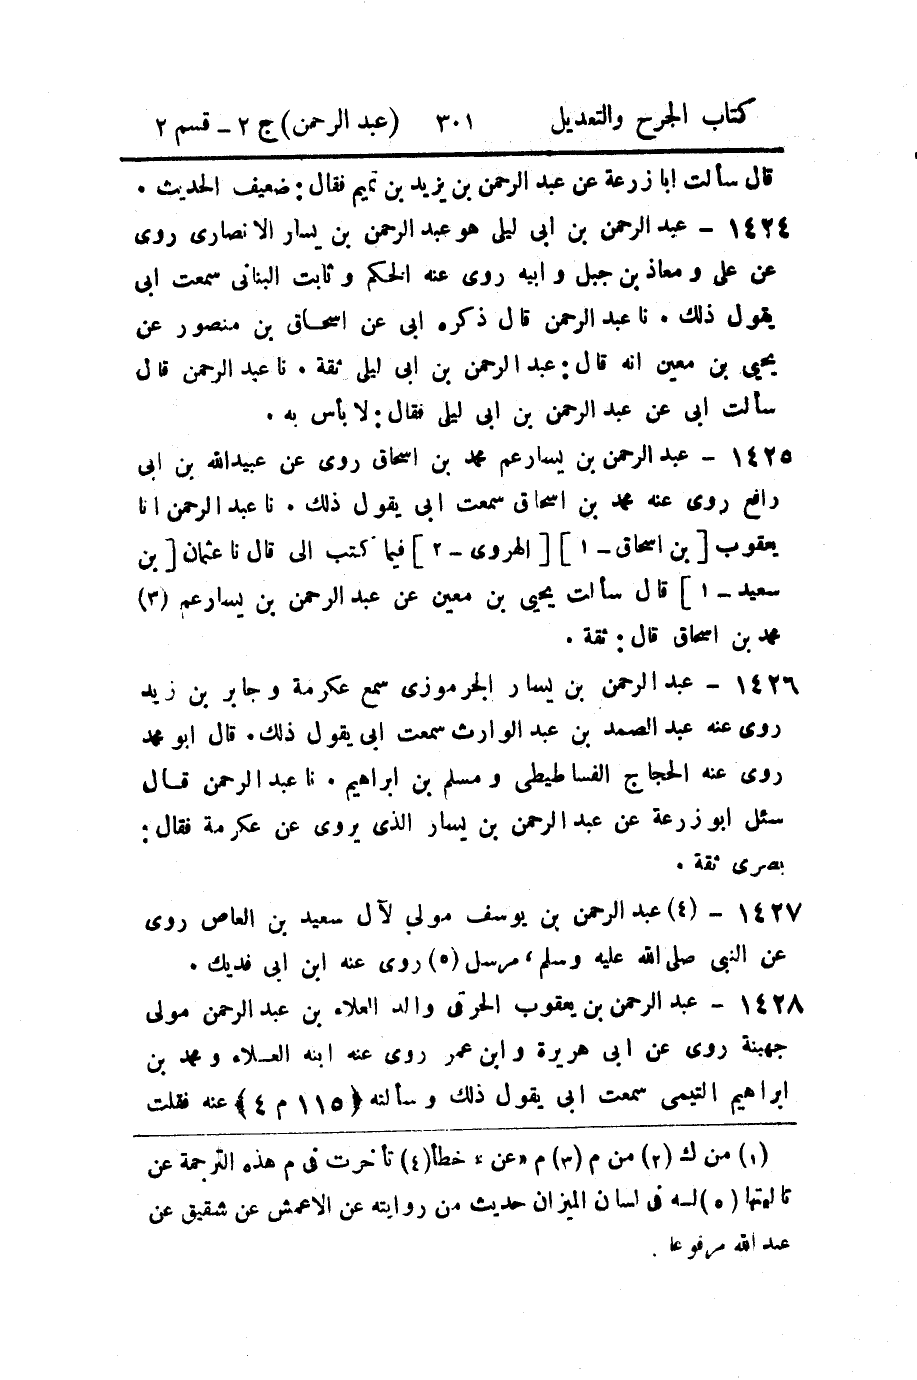 كتاب الجرح والتعديل ٣٠١ (عبد الرحمن) ج ٢ - قسم ٢
قال سألت ابا زرعة عن عبد الرحمن بن يزيد بن تميم فقال : ضعيف الحديث .
١٤٢٤ - عبد الرحمن بن ابى ليلى هو عبد الرحمن بن يسار الانصارى روى
عن على و معاذ بن جبل و ابيه روى عنه الحكم و ثابت البنانى سمعت ابى
يقول ذلك . نا عبد الرحمن قال ذكره ابى عن اسحاق بن منصور عن
يحيى بن معين انه قال : عبد الرحمن بن ابى ليلى ثقة . نا عبد الرحمن قال
سألت ابى عن عبد الرحمن بن ابى ليلى فقال : لا بأس به .
١٤٢٥ - عبد الرحمن بن يسار عم محمد بن اسحاق روى عن عبيدالله بن ابى
رافع روى عنه محمد بن اسحاق سمعت ابى يقول ذلك . نا عبد الرحمن انا
يعقوب [ بن اسحاق - ١ ] [ الهروى - ٢ ] فيما كتب الى قال نا عثمان [ بن
سعيد - ١ ] قال سألت يحيى بن معين عن عبد الرحمن بن يسار عم (٣)
محمد بن اسحاق قال : ثقة .
١٤٢٦ - عبد الرحمن بن يسار الجرموزى سمع عكرمة و جابر بن زيد
روى عنه عبد الصمد بن عبد الوارث سمعت ابى يقول ذلك . قال ابو محمد
روى عنه الحجاج الفساطيطى و مسلم بن ابراهيم . نا عبد الرحمن قال
سئل ابو زرعة عن عبد الرحمن بن يسار الذى يروى عن عكرمة فقال :
بصرى ثقة .
١٤٢٧ - (٤) عبد الرحمن بن يوسف مولى لآل سعيد بن العاص روى
عن النبى صلى الله عليه وسلم ، مرسل (٥) روى عنه ابن ابى فديك .
١٤٢٨ - عبد الرحمن بن يعقوب الحرقى والد العلاء بن عبد الرحمن مولى
جهينة روى عن ابى هريرة و ابن عمر روى عنه ابنه العلاء و محمد بن
ابراهيم التيمى سمعت ابى يقول ذلك و سألته ﴿ ١١٥ م ٤ ﴾ عنه فقلت
(١) من ك (٢) من م (٣) م «عن» خطأ (٤) تأخرت فى م هذه الترجمة عن
تاليتها (٥) له فى لسان الميزان حديث من روايته عن الاعمش عن شقيق عن
عبد الله مرفوعا .